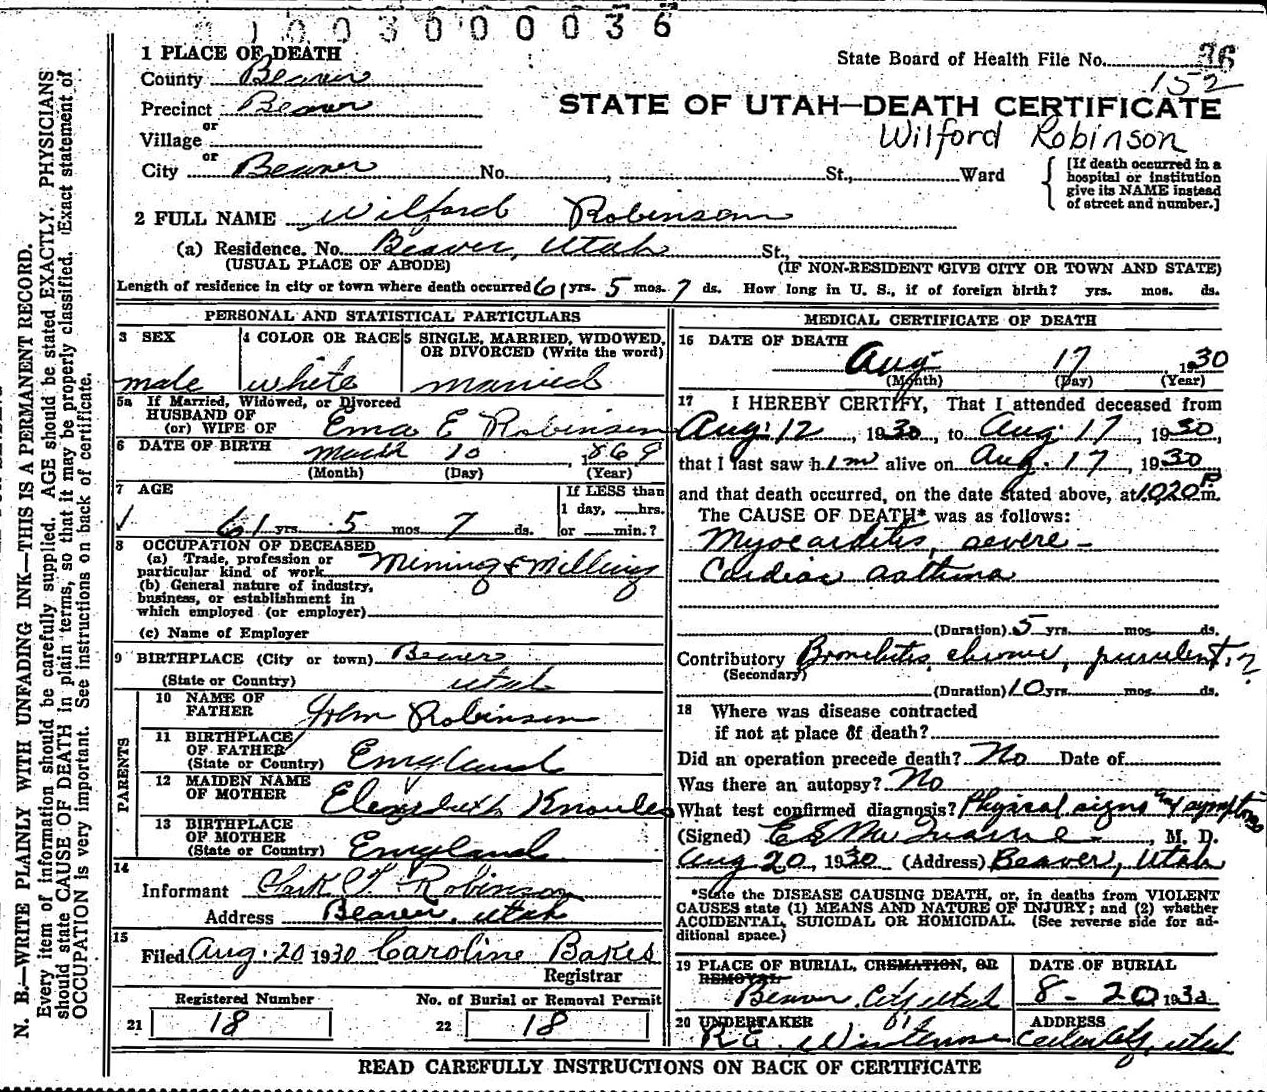 0 1 0 0 3 0 0 0 0 3 6
1 PLACE OF DEATH
State Board of Health File No. 36
152
County Beaver
Precinct Beaver
STATE OF UTAH—DEATH CERTIFICATE
Wilford Robinson
or
Village
or
City Beaver No. , St., Ward
[If death occurred in a hospital or institution give its NAME instead of street and number.]
2 FULL NAME Wilford Robinson
(a) Residence. No. Beaver, Utah St.,
(USUAL PLACE OF ABODE) (IF NON-RESIDENT GIVE CITY OR TOWN AND STATE)
Length of residence in city or town where death occurred 61 yrs. 5 mos. 7 ds. How long in U. S., if of foreign birth? yrs. mos. ds.
PERSONAL AND STATISTICAL PARTICULARS
3 SEX
male
4 COLOR OR RACE
white
5 SINGLE, MARRIED, WIDOWED,
OR DIVORCED (Write the word)
married
5a If Married, Widowed, or Divorced
HUSBAND OF
(or) WIFE OF Ema E Robinson
6 DATE OF BIRTH March 10, 1869
(Month) (Day) (Year)
7 AGE
61 yrs. 5 mos. 7 ds.
If LESS than
1 day, hrs.
or min.?
8 OCCUPATION OF DECEASED
(a) Trade, profession or
particular kind of work Mining & Milling
(b) General nature of industry,
business, or establishment in
which employed (or employer)
(c) Name of Employer
9 BIRTHPLACE (City or town) Beaver
(State or Country) Utah
PARENTS
10 NAME OF
FATHER John Robinson
11 BIRTHPLACE
OF FATHER
(State or Country) England
12 MAIDEN NAME
OF MOTHER Elizabeth Knowles
13 BIRTHPLACE
OF MOTHER
(State or Country) England
14
Informant Clark T Robinson
Address Beaver, Utah
15
Filed Aug. 20 1930 Caroline Bakes
Registrar
Registered Number
21 18
No. of Burial or Removal Permit
22 18
MEDICAL CERTIFICATE OF DEATH
16 DATE OF DEATH
Aug 17 1930
(Month) (Day) (Year)
17 I HEREBY CERTIFY, That I attended deceased from
Aug. 12, 1930, to Aug 17, 1930,
that I last saw him alive on Aug. 17, 1930
and that death occurred, on the date stated above, at 10 20 P m.
The CAUSE OF DEATH* was as follows:
Myocarditis, severe -
Cardiac asthma
(Duration) 5 yrs. mos. ds.
Contributory Bronchitis, chronic, purulent.
(Secondary)
(Duration) 10 yrs. mos. ds.
18 Where was disease contracted
if not at place of death?
Did an operation precede death? No Date of
Was there an autopsy? No
What test confirmed diagnosis? Physical signs and symptoms
(Signed) , M. D.
Aug 20, 1930 (Address) Beaver, Utah
*State the DISEASE CAUSING DEATH, or, in deaths from VIOLENT
CAUSES state (1) MEANS AND NATURE OF INJURY; and (2) whether
ACCIDENTAL, SUICIDAL OR HOMICIDAL. (See reverse side for ad-
ditional space.)
19 PLACE OF BURIAL, CREMATION, OR
REMOVAL
Beaver City, Utah
DATE OF BURIAL
8 - 20 1930
20 UNDERTAKER
ADDRESS
Cedar City, Utah
READ CAREFULLY INSTRUCTIONS ON BACK OF CERTIFICATE
N. B.—WRITE PLAINLY WITH UNFADING INK—THIS IS A PERMANENT RECORD.
Every item of information should be carefully supplied. AGE should be stated EXACTLY. PHYSICIANS
should state CAUSE OF DEATH in plain terms, so that it may be properly classified. Exact statement of
OCCUPATION is very important. See instructions on back of certificate.